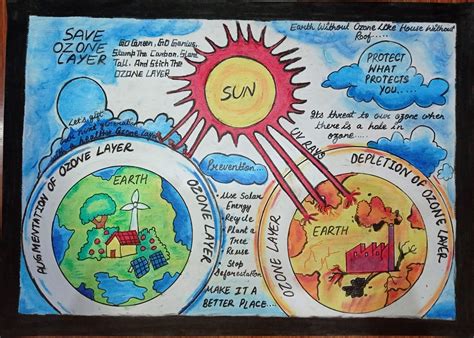 SAVE
OZONE
LAYER
Go Green, GO Genius,
Stamp The Carbon, Stand
Tall, And Stich The
OZONE LAYER
Earth Without Ozone Like House Without
Roof....
SUN
PROTECT
WHAT
PROTECTS
YOU.....
Its threat to our ozone when
there is a hole in
ozone....
Let's gift
our next generation
healthy Ozone Layer
UV RAYS
Prevention...
• Use Solar
Energy
• Recycle
• Plant a
Tree
• Reuse
• Stop
Deforestation
MAKE IT A
BETTER PLACE....
AUGMENTATION OF OZONE LAYER
OZONE LAYER
EARTH
DEPLETION OF OZONE LAYER
OZONE LAYER
EARTH